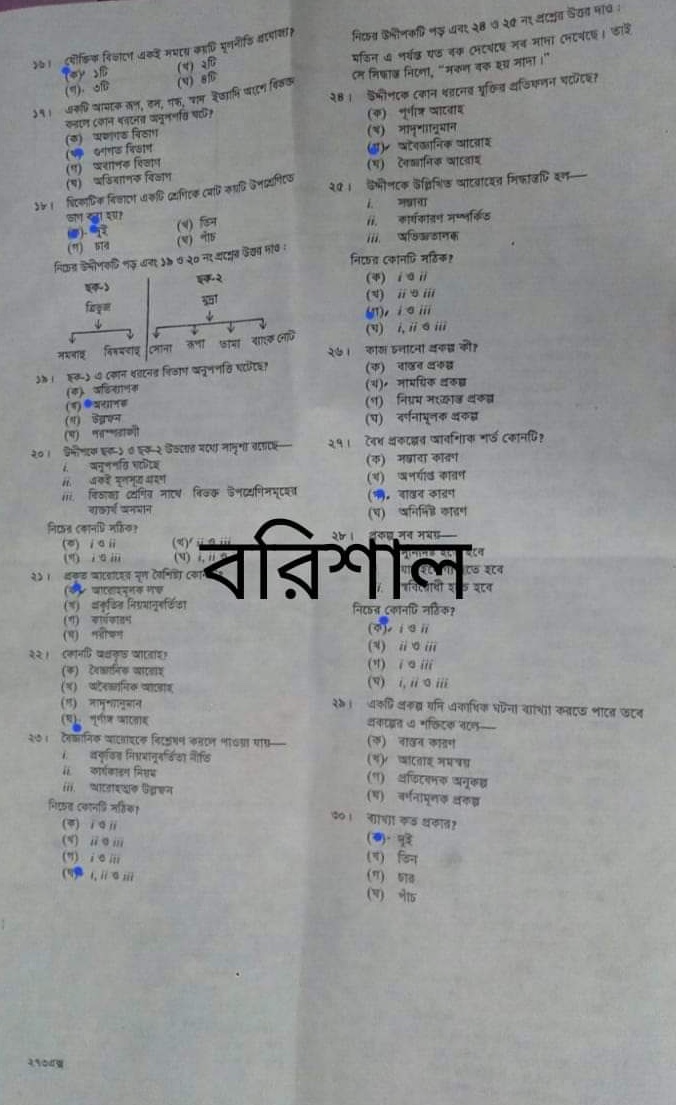 ১৬। যৌক্তিক বিভাগে একই সময়ে কয়টি মূলনীতি প্রযোজ্য?
(ক) ১টি (খ) ২টি
(গ) ৩টি (ঘ) ৪টি
১৭। একটি আমকে রূপ, রস, গন্ধ, স্বাদ ইত্যাদি অংশে বিভক্ত
করলে কোন ধরনের অনুপপত্তি ঘটে?
(ক) অঙ্গগত বিভাগ
(খ) গুণগত বিভাগ
(গ) অব্যাপক বিভাগ
(ঘ) অতিব্যাপক বিভাগ
১৮। দ্বিকোটিক বিভাগে একটি শ্রেণিকে মোট কয়টি উপশ্রেণিতে
ভাগ করা হয়?
(ক) দুই (খ) তিন
(গ) চার (ঘ) পাঁচ
নিচের উদ্দীপকটি পড় এবং ১৯ ও ২০ নং প্রশ্নের উত্তর দাও :
ছক-১ ছক-২
ত্রিভুজ মুদ্রা
সমবাহু বিষমবাহু সোনা রূপা তামা ব্যাংক নোট
১৯। ছক-১ এ কোন ধরনের বিভাগ অনুপপত্তি ঘটেছে?
(ক) অতিব্যাপক
(খ) অব্যাপক
(গ) উল্লম্ফন
(ঘ) পরস্পরাঙ্গী
২০। উদ্দীপকে ছক-১ ও ছক-২ উভয়ের মধ্যে সাদৃশ্য রয়েছে—
i. অনুপপত্তি ঘটেছে
ii. একই মূলসূত্র গ্রহণ
iii. বিভাজ্য শ্রেণির সাথে বিভক্ত উপশ্রেণিসমূহের
ব্যক্ত্যর্থ অসমান
নিচের কোনটি সঠিক?
(ক) i ও ii (খ) ii ও iii
(গ) i ও iii (ঘ) i, ii
২১। প্রকৃত আরোহের মূল বৈশিষ্ট্য
(ক) আরোহমূলক লম্ফ
(খ) প্রকৃতির নিয়মানুবর্তিতা
(গ) কার্যকারণ
(ঘ) পরীক্ষণ
২২। কোনটি অপ্রকৃত আরোহ?
(ক) বৈজ্ঞানিক আরোহ
(খ) অবৈজ্ঞানিক আরোহ
(গ) সাদৃশ্যানুমান
(ঘ) পূর্ণাঙ্গ আরোহ
২৩। বৈজ্ঞানিক আরোহকে বিশ্লেষণ করলে পাওয়া যায়—
i. প্রকৃতির নিয়মানুবর্তিতা নীতি
ii. কার্যকারণ নিয়ম
iii. আরোহাত্মক উল্লম্ফন
নিচের কোনটি সঠিক?
(ক) i ও ii
(খ) ii ও iii
(গ) i ও iii
(ঘ) i, ii ও iii
নিচের উদ্দীপকটি পড় এবং ২৪ ও ২৫ নং প্রশ্নের উত্তর দাও :
মতিন এ পর্যন্ত যত বক দেখেছে সব সাদা দেখেছে। তাই
সে সিদ্ধান্ত নিলো, "সকল বক হয় সাদা।"
২৪। উদ্দীপকে কোন ধরনের যুক্তির প্রতিফলন ঘটেছে?
(ক) পূর্ণাঙ্গ আরোহ
(খ) সাদৃশ্যানুমান
(গ) অবৈজ্ঞানিক আরোহ
(ঘ) বৈজ্ঞানিক আরোহ
২৫। উদ্দীপকে উল্লিখিত আরোহের সিদ্ধান্তটি হল—
i. সম্ভাব্য
ii. কার্যকারণ সম্পর্কিত
iii. অভিজ্ঞতালব্ধ
নিচের কোনটি সঠিক?
(ক) i ও ii
(খ) ii ও iii
(গ) i ও iii
(ঘ) i, ii ও iii
২৬। কাজ চলানো প্রকল্প কী?
(ক) বাস্তব প্রকল্প
(খ) সাময়িক প্রকল্প
(গ) নিয়ম সংক্রান্ত প্রকল্প
(ঘ) বর্ণনামূলক প্রকল্প
২৭। বৈধ প্রকল্পের আবশ্যিক শর্ত কোনটি?
(ক) সম্ভাব্য কারণ
(খ) অপর্যাপ্ত কারণ
(গ) বাস্তব কারণ
(ঘ) অনির্দিষ্ট কারণ
২৮। প্রকল্প সব সময়—
হতে হবে
হতে হবে
হতে হবে
বরিশাল
নিচের কোনটি সঠিক?
(ক) i ও ii
(খ) ii ও iii
(গ) i ও iii
(ঘ) i, ii ও iii
২৯। একটি প্রকল্প যদি একাধিক ঘটনা ব্যাখ্যা করতে পারে তবে
প্রকল্পের এ শক্তিকে বলে—
(ক) বাস্তব কারণ
(খ) আরোহ সমন্বয়
(গ) প্রতিবেদক অনুকল্প
(ঘ) বর্ণনামূলক প্রকল্প
৩০। ব্যাখ্যা কত প্রকার?
(ক) দুই
(খ) তিন
(গ) চার
(ঘ) পাঁচ